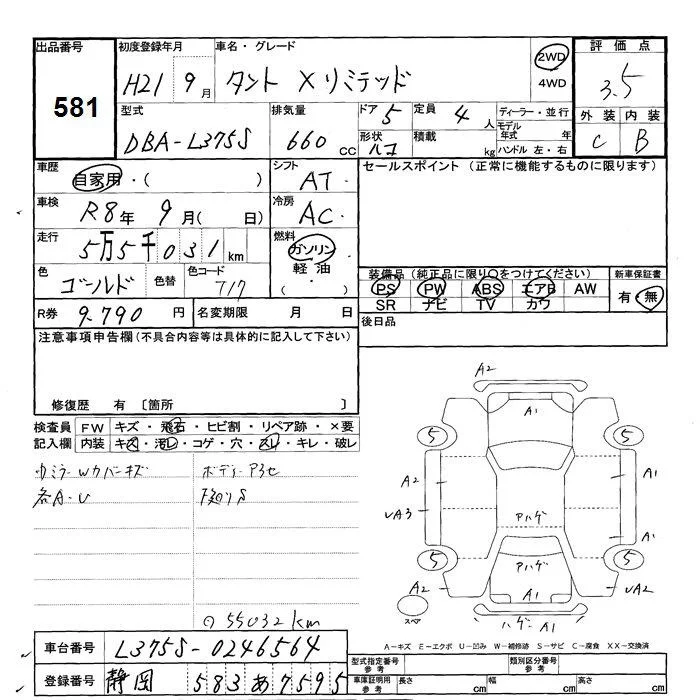 出品番号 初度登録年月 車名・グレード 2WD 評価点
581 H21 9月 タント Xリミテッド 4WD 3.5
型式 排気量 ドア 5 定員 4人 ディーラー・並行 外装 内装
DBA-L375S 660 CC 形状 積載 kg モデル年式 年 C B
ハンドル 左・右
車歴 自家用・( ) シフト AT セールスポイント (正常に機能するものに限ります)
車検 R8年 9月( 日) 冷房 AC
走行 5万5千031km 燃料 ガソリン
軽油
・( )
色 ゴールド 色替 色コード 717 装備品(純正品に限り○をつけてください) 新車保証書
PS PW ABS エアB AW 有・無
SR ナビ TV カワ
R券 9.790 円 名変期限 月 日 後日品
注意事項申告欄(不具合内容等は具体的に記入して下さい)
修復歴 有 〔箇所 〕
検査員 FW キズ・飛石・ヒビ割・リペア跡・×要
記入欄 内装 キズ・汚レ・コゲ・穴・スレ・キレ・破レ
各A・U 下廻りS
55032km
A2
A1
5 5
A2 A1
A1
UA3 Aハゲ
5 5
A2 A1 UA2
スペア ハゲ A1
A-キズ E-エクボ U-凹み W-補修跡 S-サビ C-腐食 XX-交換済
車台番号 L375S-0246564
登録番号 静岡 583 あ 7595
型式指定番号 参考 類別区分番号 参考
車庫証明用 参考 長さ cm 幅 cm 高さ cm